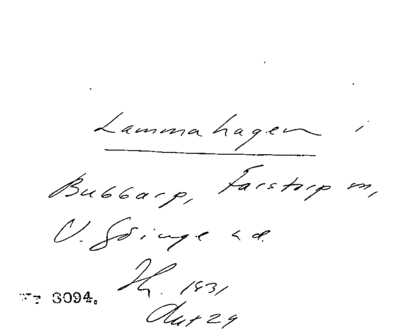 Lammahagen i
Bubbarp, Farstorp sn,
V. Göinge hd.
1831
3094.